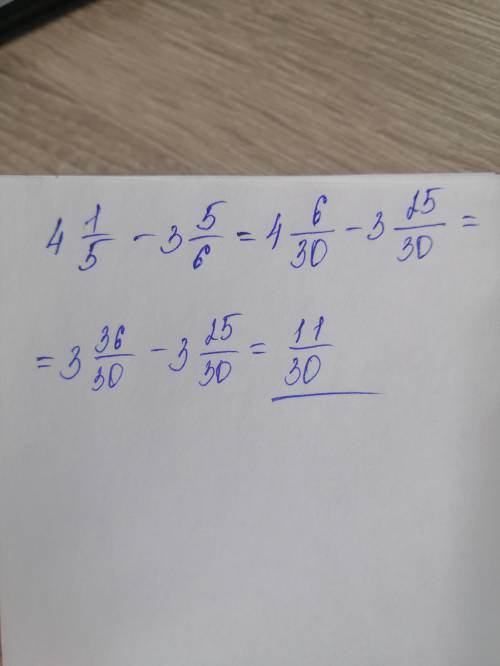 4 1/5 - 3 5/6 = 4 6/30 - 3 25/30 =
= 3 36/30 - 3 25/30 = 11/30